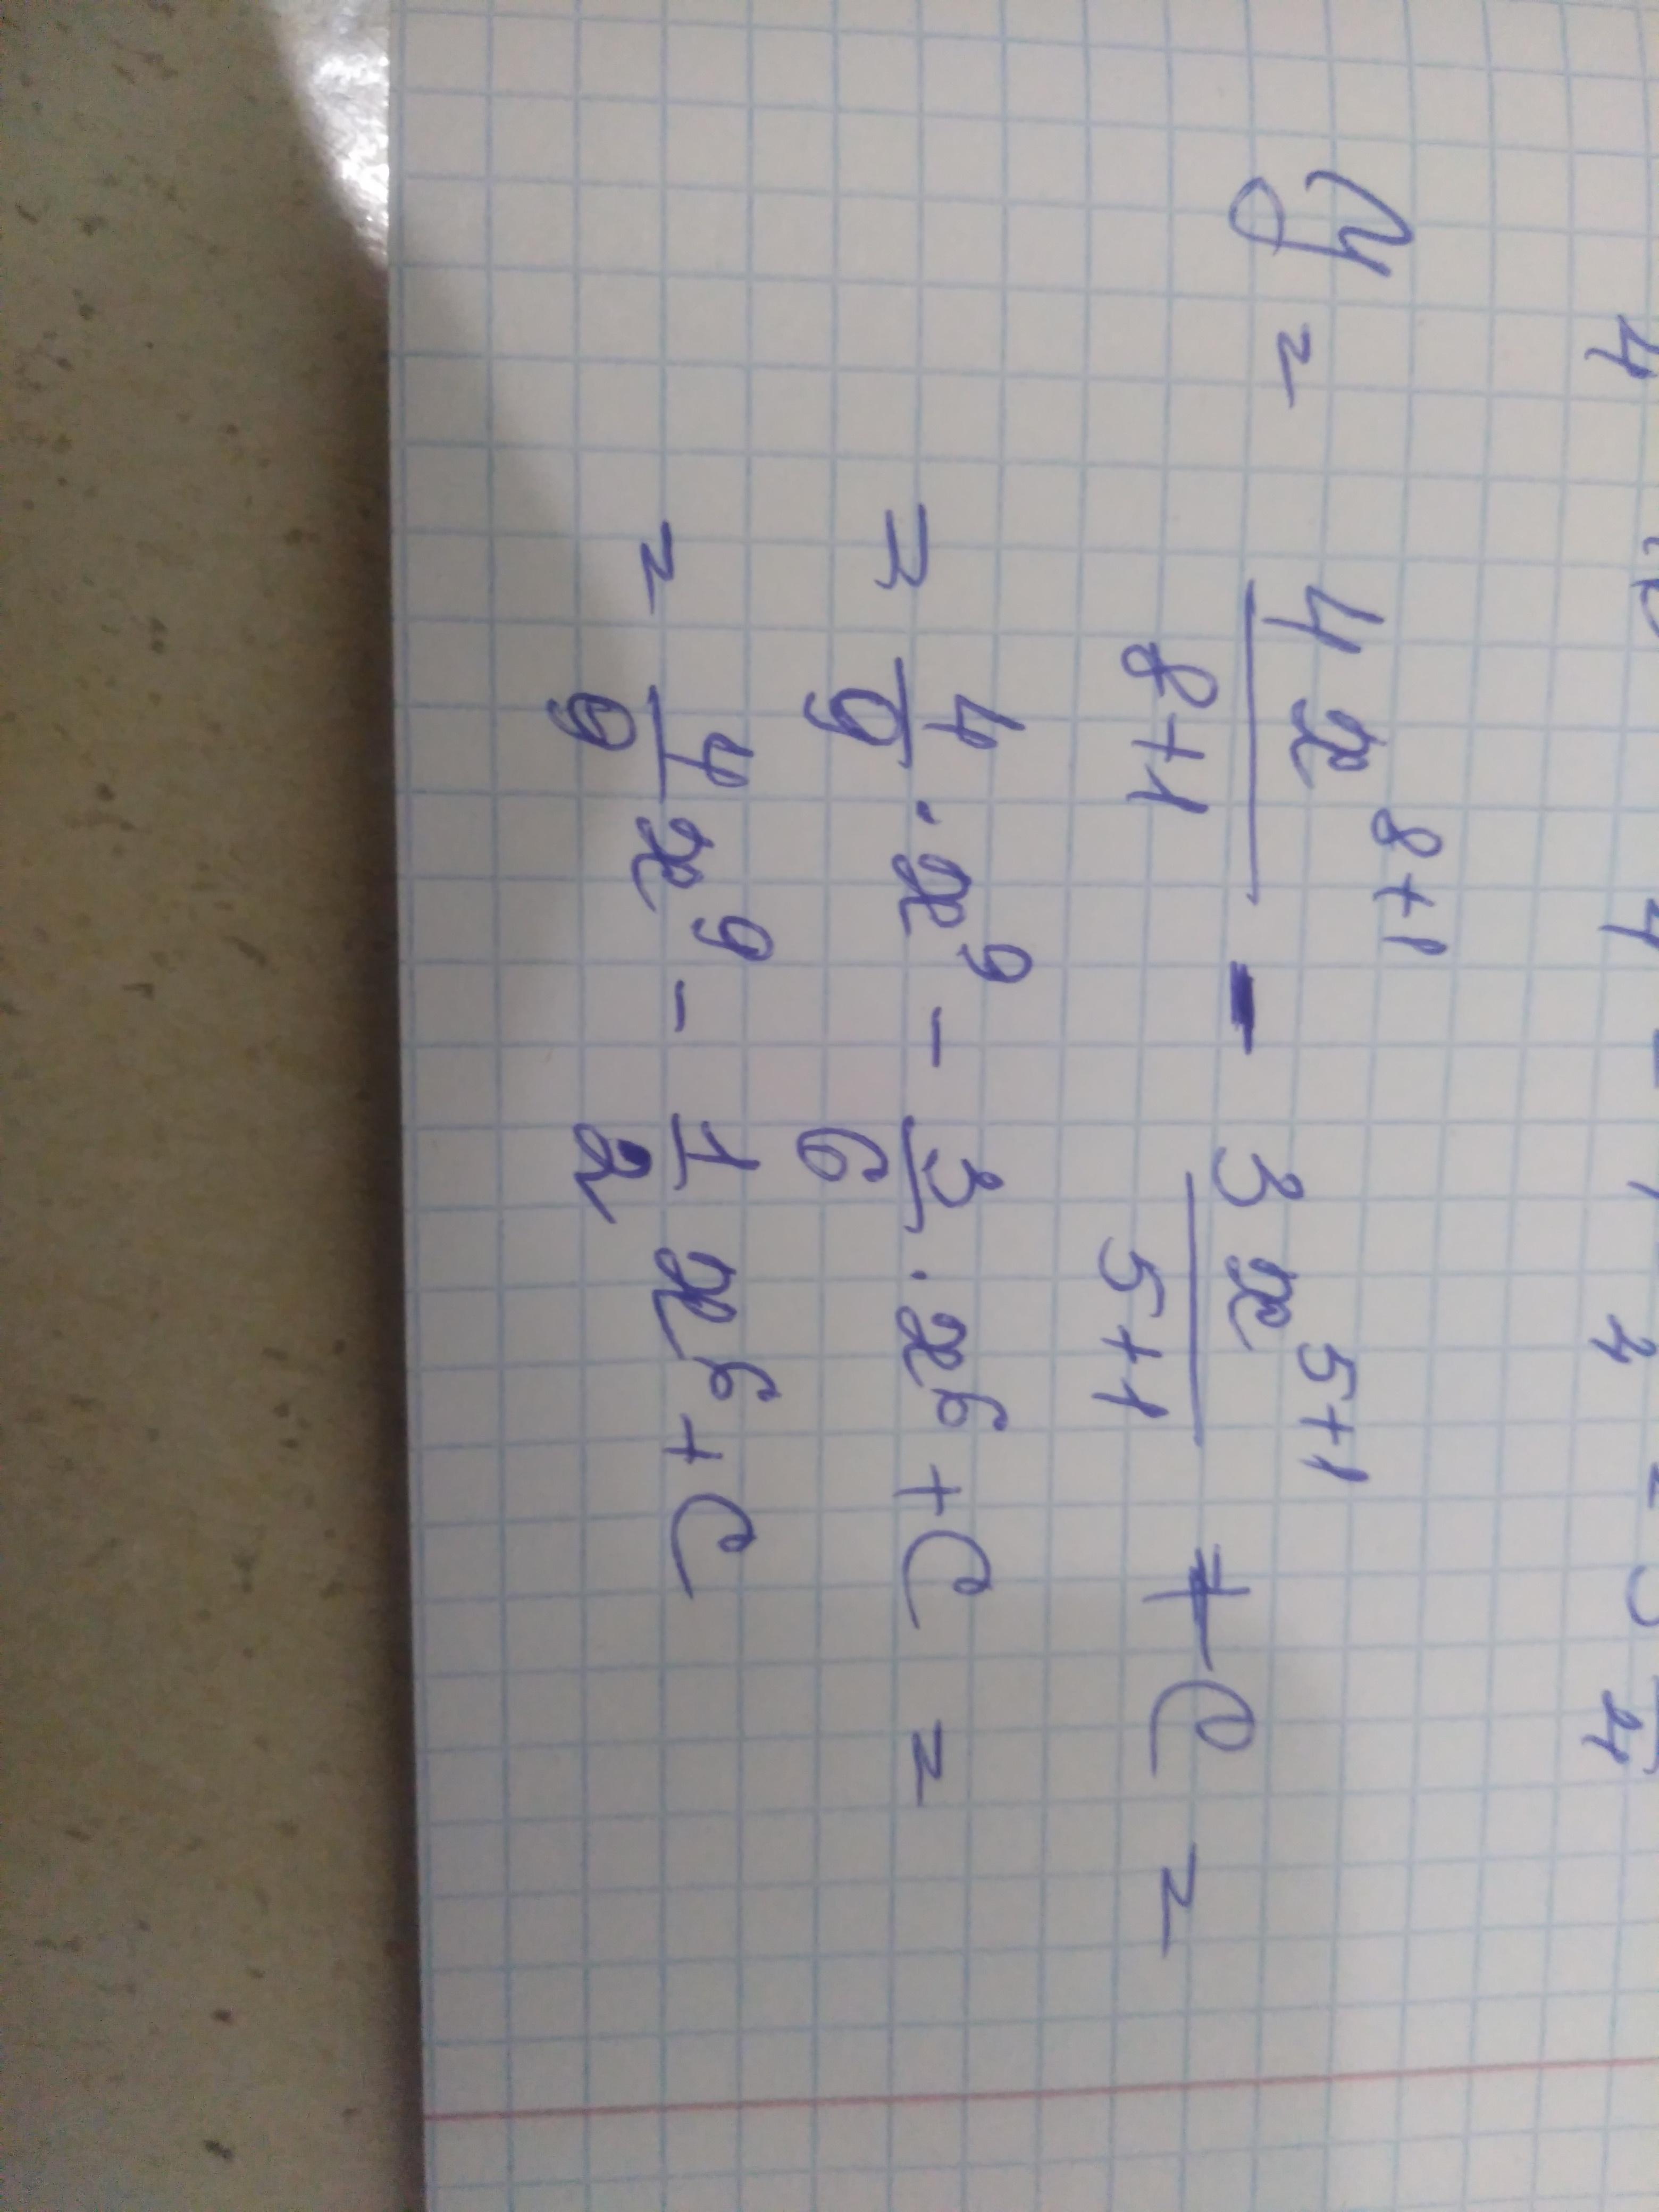 y = 4x^{8+1}/(8+1) - 3x^{5+1}/(5+1) + C =
= 4/9 · x^9 - 3/6 · x^6 + C =
= 4/9 x^9 - 1/2 x^6 + C